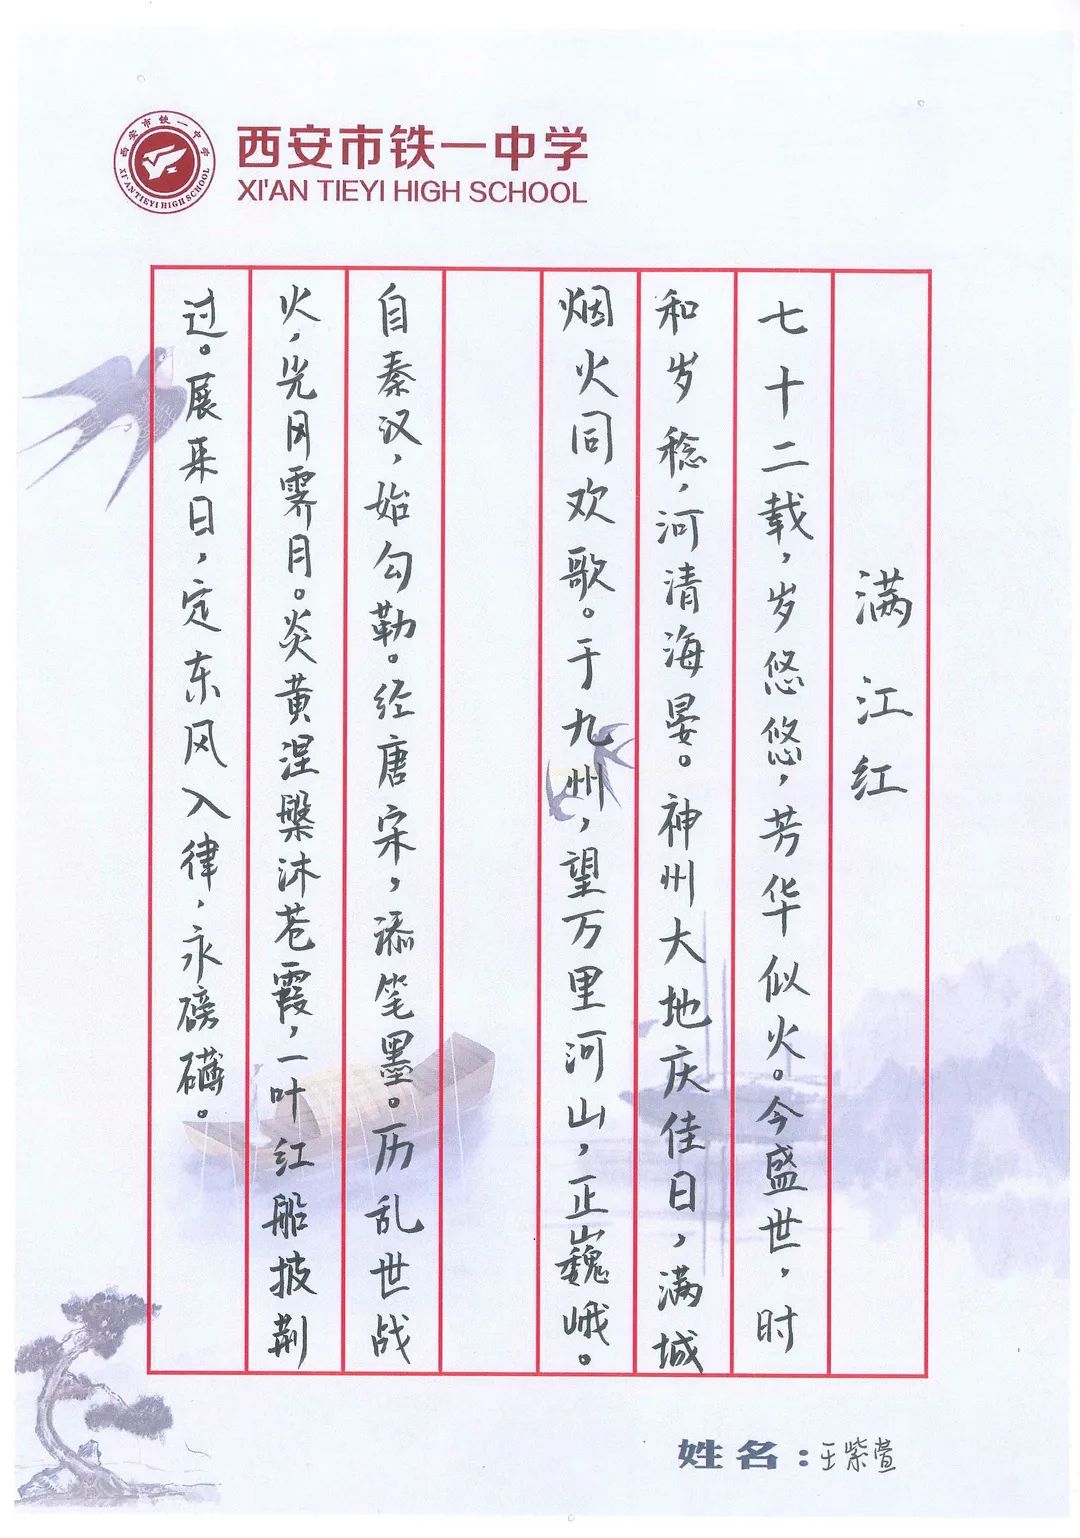 西安市铁一中学
XI'AN TIEYI HIGH SCHOOL
西安市铁一中学
XI'AN TIEYI HIGH SCHOOL
满江红
七十二载，岁悠悠，芳华似火。今盛世，时
和岁稔，河清海晏。神州大地庆佳日，满城
烟火同欢歌。于九州，望万里河山，正巍峨。
自秦汉，始勾勒。经唐宋，添笔墨。历乱世战
火，光风霁月。炎黄涅槃沐苍霞，一叶红船披荆
过。展来日，定东风入律，永磅礴。
姓名：王紫萱